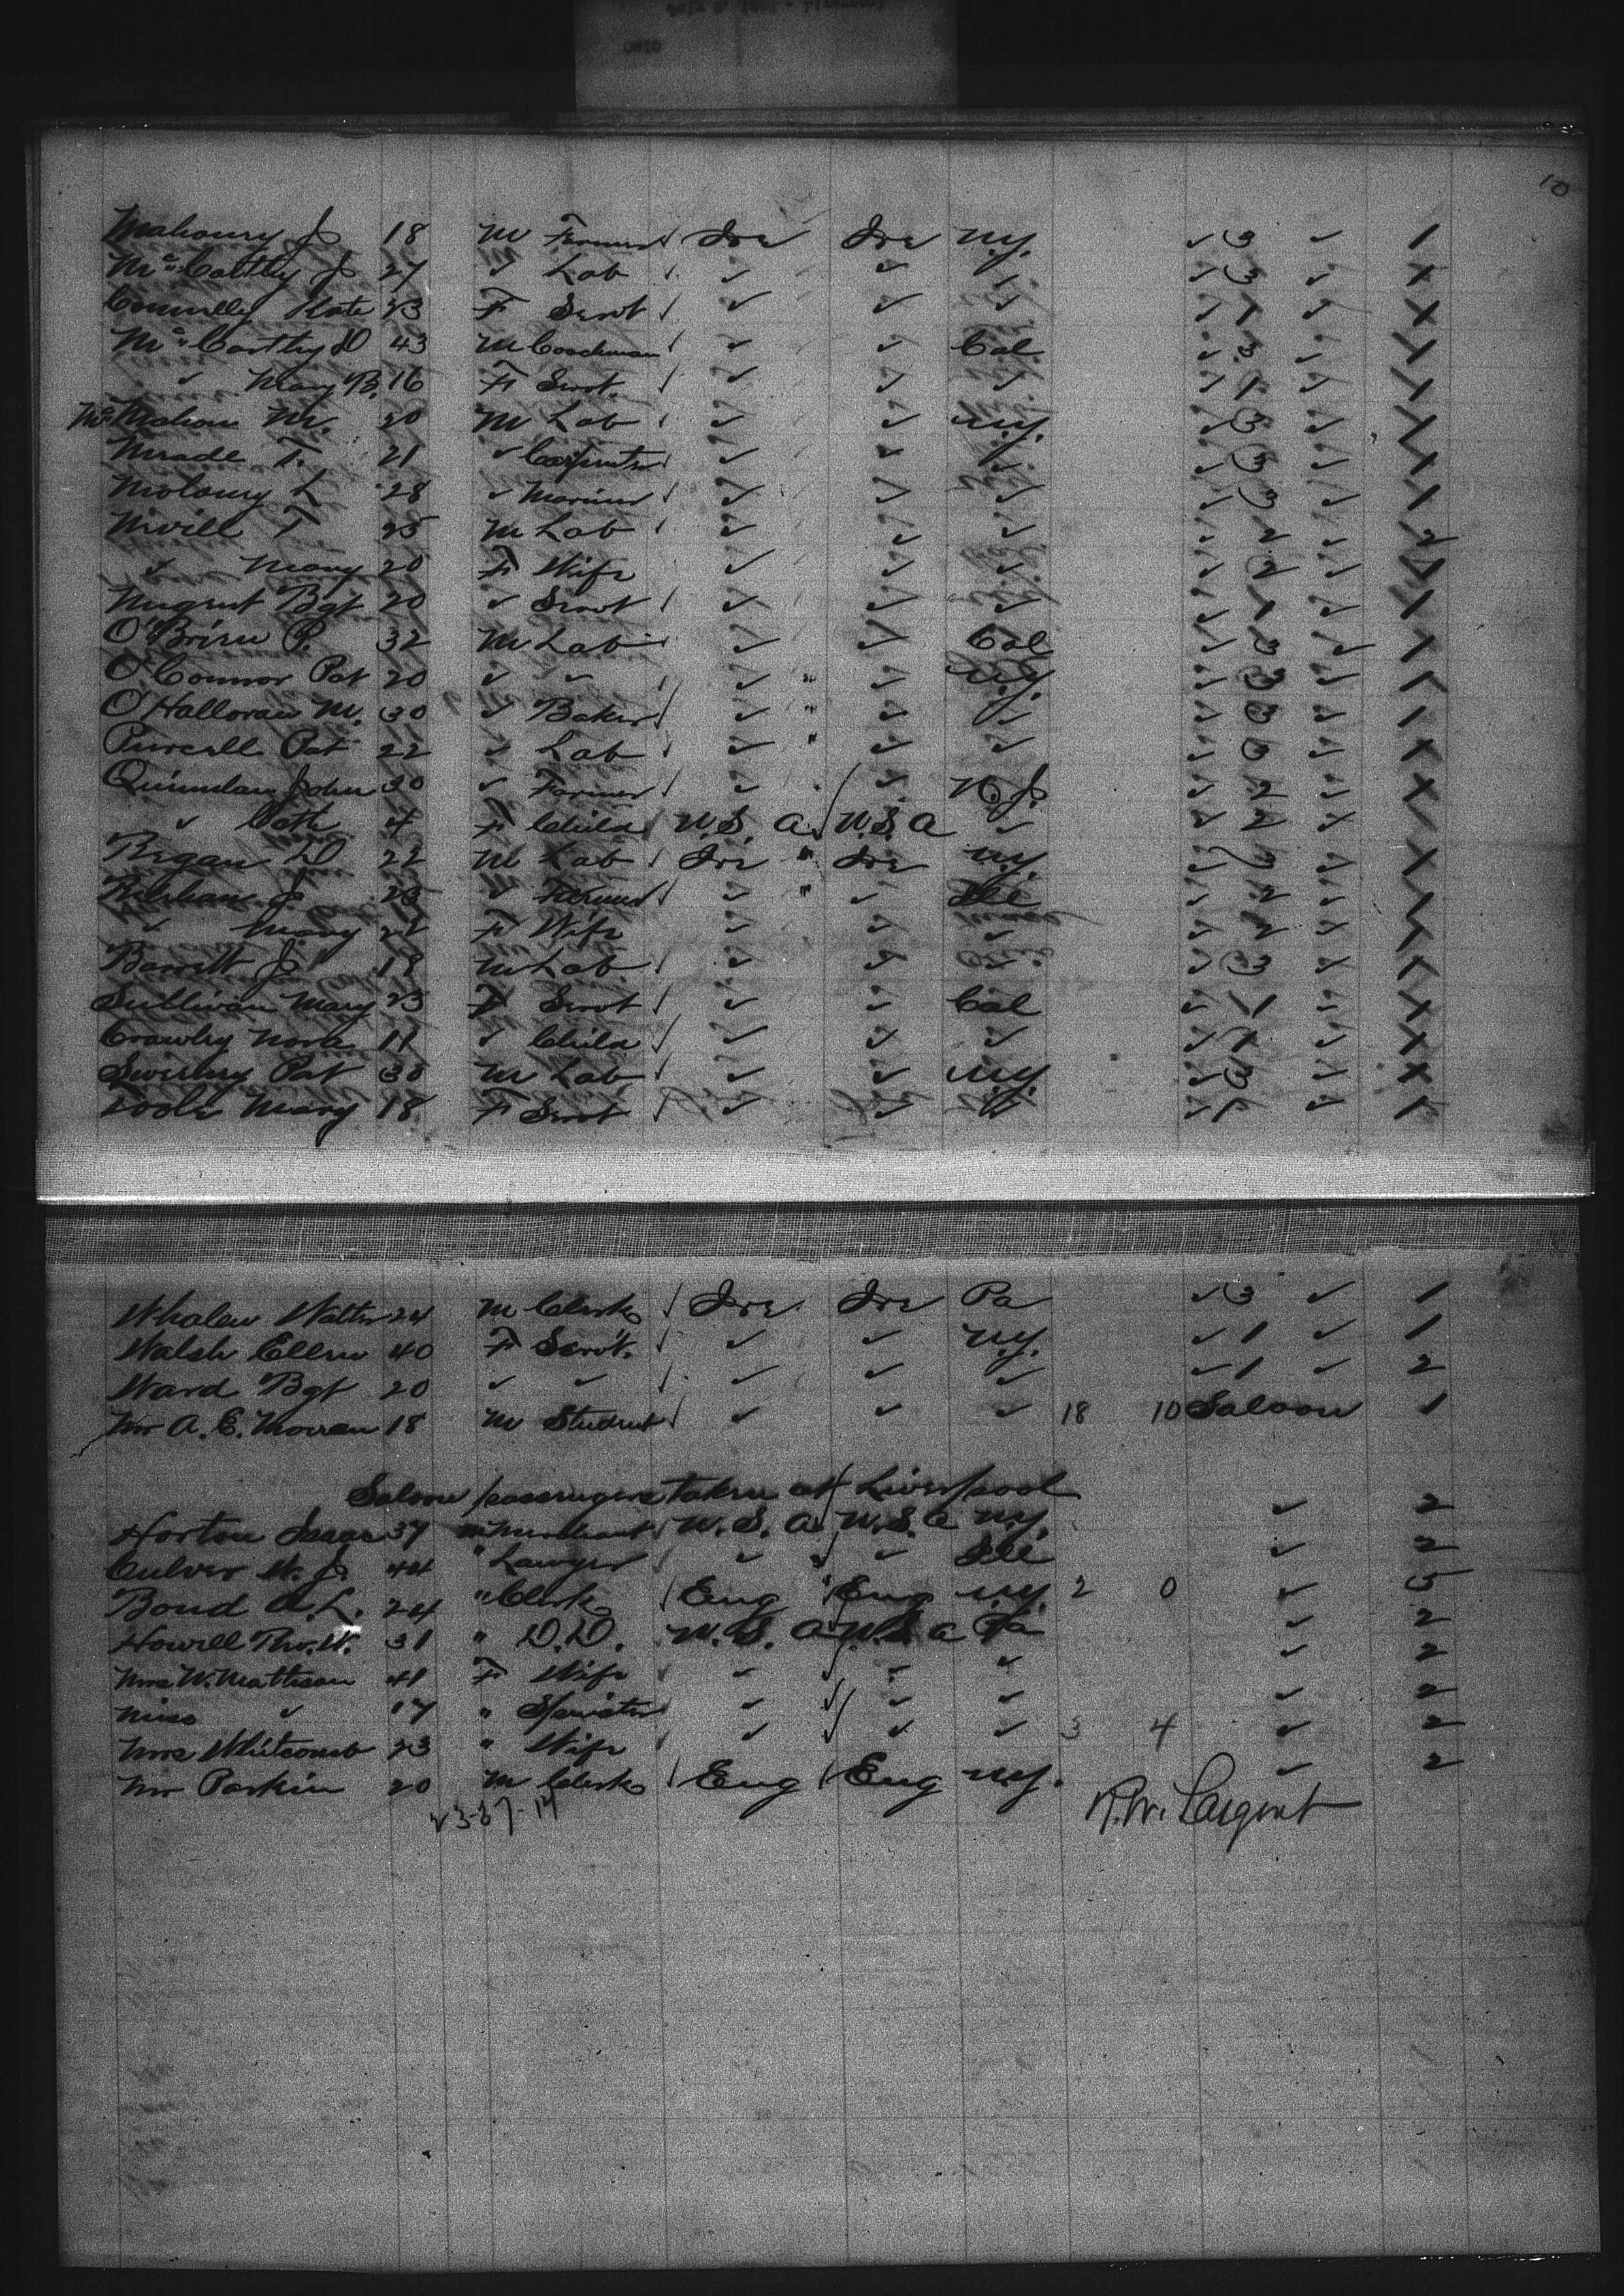 10
Mahoney J 18 M Farmer Ire Ire N.Y. ✓ 3 ✓ 1
McCarthy J 27 ✓ Lab ✓ ✓ ✓ ✓ 3 ✓ 1
Connelly Kate 23 F Servt ✓ ✓ ✓ ✓ 1 ✓ 1
McCarthy D 43 M Coachman ✓ ✓ Cal ✓ 3 ✓ 1
✓ Mary B. 16 F Servt. ✓ ✓ ✓ ✓ 1 ✓ 1
McMahon M. 20 M Lab ✓ ✓ N.Y. ✓ 3 ✓ 1
Meade T. 21 ✓ Carpenter ✓ ✓ ✓ ✓ 3 ✓ 1
Moloney L 28 ✓ Mariner ✓ ✓ ✓ ✓ 3 ✓ 1
Nevill T 25 M Lab ✓ ✓ ✓ ✓ 2 ✓ 2
✓ Mary 20 F Wife ✓ ✓ ✓ ✓ 2 ✓
Nugent Bgt 20 ✓ Servt ✓ ✓ ✓ ✓ 1 ✓ 1
O'Brien P. 32 M Lab ✓ ✓ Cal ✓ 3 ✓ 1
O'Connor Pat 20 ✓ ✓ ✓ " ✓ N.Y. ✓ 3 ✓ 1
O'Halloran M. 30 ✓ Baker ✓ " ✓ ✓ ✓ 3 ✓ 1
Purcell Pat 22 ✓ Lab ✓ " ✓ ✓ ✓ 3 ✓ 1
Quinnlan John 30 ✓ Farmer ✓ ✓ N.J. ✓ 2 ✓ 1
✓ Cath 4 F Child U.S. A. U.S. A ✓ ✓ 2 ✓
Regan D 22 M Lab Ire " Ire N.Y. ✓ 3 ✓ 1
J 23 ✓ Farmer ✓ " ✓ Ill ✓ 2 ✓ 1
✓ Mary F Wife ✓ ✓ ✓ ✓ 2 ✓ 1
Barrett J M Lab ✓ ✓ ✓ ✓ 3 ✓ 1
Sullivan Mary 23 F Servt ✓ ✓ Cal ✓ 1 ✓ 1
Crowley Nora 11 ✓ Child ✓ ✓ ✓ ✓ 1 ✓ 1
Sweeney Pat 30 M Lab ✓ ✓ N.Y. ✓ 3 ✓ 1
Toole Mary 18 F Servt ✓ ✓ ✓ ✓ 1 ✓ 1
Whalen Walter 24 M Clerk Ire Ire Pa ✓ 3 ✓ 1
Walsh Ellen 40 F Servt. ✓ ✓ N.Y. ✓ 1 ✓ 1
Ward Bgt 20 ✓ ✓ ✓ ✓ ✓ ✓ 1 ✓ 2
Mr A. E. Moran 18 M Student ✓ ✓ ✓ 18 10 Saloon 1
Saloon passengers taken at Liverpool
Horton Isaac 37 M Merchant U.S. A. U.S. A N.Y. ✓ 2
Culver W. J. 44 " Lawyer ✓ ✓ ✓ Ill ✓ 2
Bond A. L. 24 " Clerk Eng " Eng N.Y. 2 0 ✓ 5
Howell Tho. W. 31 " D.D. U.S. A U.S. A Pa ✓ 2
Mrs W. Mattison 41 F Wife ✓ ✓ ✓ ✓ 2
Miss ✓ 17 " Spinster ✓ ✓ ✓ ✓ ✓ 2
Mrs Whitcomb 23 " Wife ✓ ✓ ✓ ✓ 3 4 ✓ 2
Mr Parkin 20 M Clerk Eng Eng N.Y. ✓ 2
23-37-14
R. W. Sargent